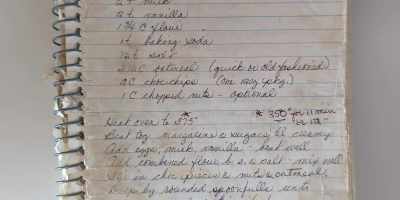 2 t. milk
2 t. vanilla
1 3/4 C flour
1 t. baking soda
1/2 t. salt
C oatmeal (quick or old fashioned)
2 C choc chips (one 12oz pkg.)
1 C chopped nuts - optional
Heat oven to 375° * 350° for 11 min
Beat tog. margarine & sugars til creamy
Add eggs, milk, vanilla - beat well
Add combined flour b.s. & salt - mix well
Stir in choc pieces & nuts & oatmeal,
Drop by rounded spoonfulls onto